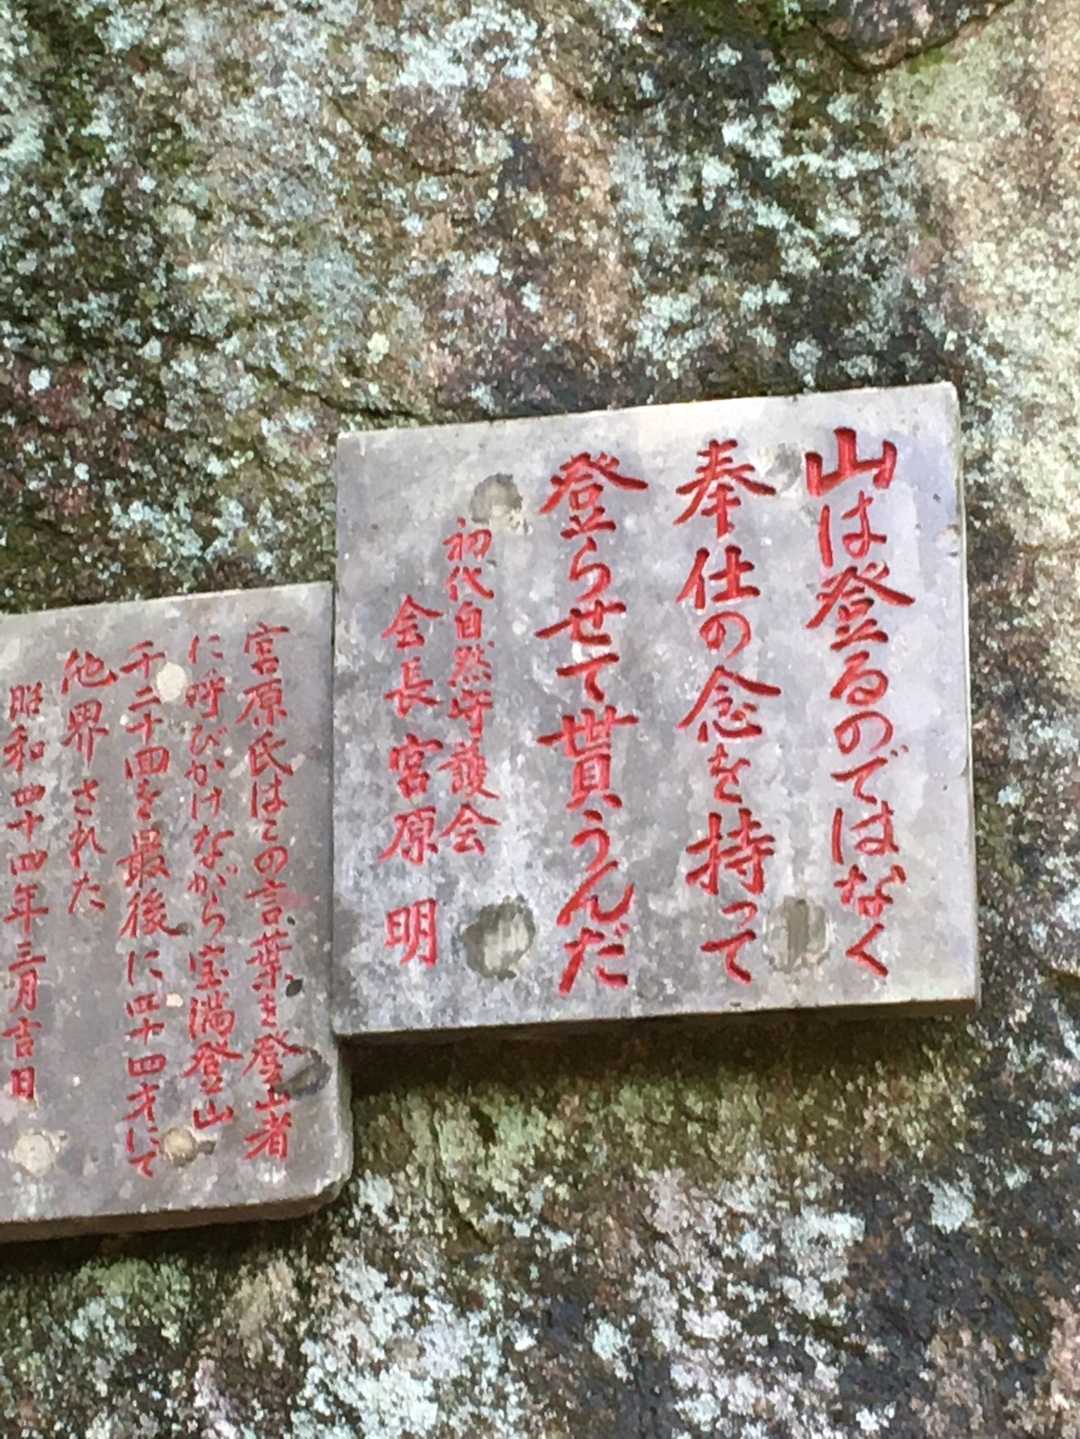 山は登るのではなく
奉仕の念を持って
登らせて貰うんだ
初代自然守護会
会長 宮原 明
宮原氏はこの言葉を登山者
に呼びかけながら宝満登山
千二十四を最後に四十四才にて
他界された
昭和四十四年三月吉日